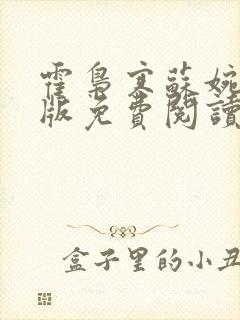 霍梟寒蘇婉
版免費閱讀
盒子里的小丑